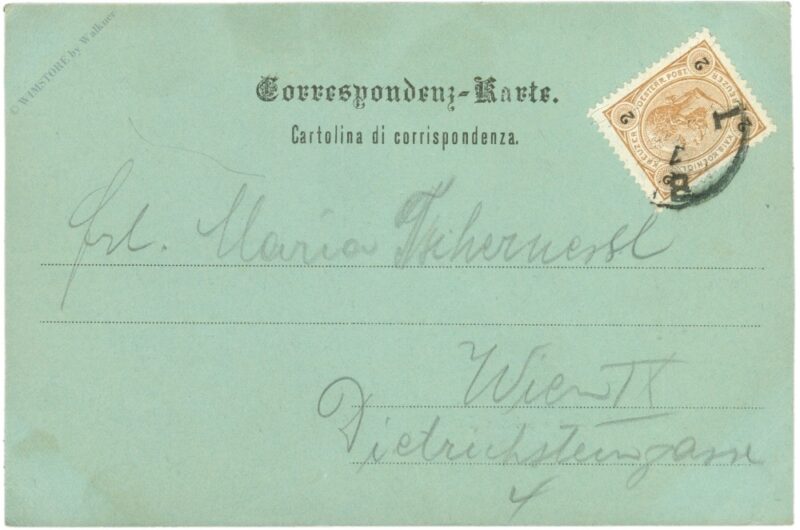 © WIMSTORE by Walkner
Correspondenz-Karte.
Cartolina di corrispondenza.
2
2
2
KREUZER
OESTERR. POST.
KREUZER
Frl. Maria Tschernessl
Wien IX
Dietrichsteingasse
4